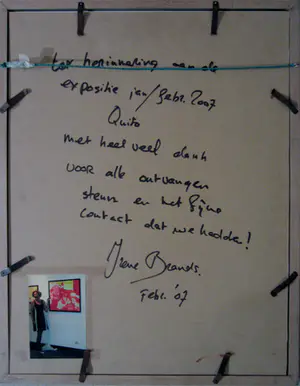 ter herinnering aan de
expositie jan/febr. 2007
Quito
met heel veel dank
voor alle ontvangen
steun en het fijne
contact dat we hadden!
Irene Brands.
Febr. '07